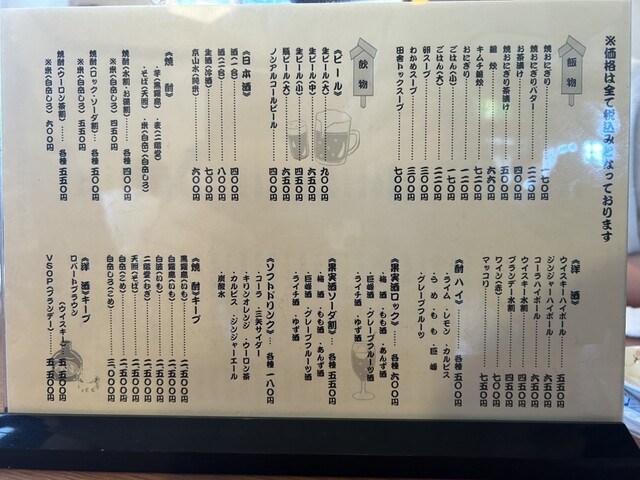 ※価格は全て税込みとなっております
飯物
焼おにぎり 一七〇円
焼おにぎりバター 二二〇円
お茶漬け 四〇〇円
焼おにぎり茶漬け 五〇〇円
雑炊 六六〇円
キムチ雑炊 七二〇円
おにぎり 一二〇円
ごはん(小) 一七〇円
ごはん(大) 二二〇円
卵スープ 三〇〇円
わかめスープ 三〇〇円
田舎トックスープ 七〇〇円
飲物
《ビール》
生ビール(大) 九〇〇円
生ビール(中) 五五〇円
生ビール(小) 四五〇円
瓶ビール(大) 六五〇円
ノンアルコールビール 四〇〇円
《日本酒》
酒(一合) 四〇〇円
酒(二合) 八〇〇円
生酒(冷酒) 七〇〇円
京山水(純米) 六〇〇円
《焼酎》
・芋(黒霧島)・麦(二階堂)
・そば(天照)・米(白岳)(白岳しろ)
焼酎(水割・お湯割) 各種 四〇〇円
※米(白岳しろ) 四五〇円
焼酎(ロック・ソーダ割) 各種 五〇〇円
※米(白岳しろ) 五五〇円
焼酎(ウーロン茶割) 各種 五五〇円
※米(白岳しろ) 六〇〇円
《洋酒》
ウイスキーハイボール 五五〇円
ジンジャーハイボール 六五〇円
コーラハイボール 六五〇円
ウイスキー水割 四五〇円
ブランデー水割 四五〇円
ワイン(赤) 五〇〇円
マッコリ 七五〇円
《酎ハイ》 各種 五〇〇円
・ライム・レモン・カルピス
・うめ・もも・巨峰
・グレープフルーツ
《果実酒ロック》 各種 六〇〇円
・梅酒・もも酒・あんず酒
・巨峰酒・グレープフルーツ酒
・ライチ酒・ゆず酒
《果実酒ソーダ割》 各種 五五〇円
・梅酒・もも酒・あんず酒
・巨峰酒・グレープフルーツ酒
・ライチ酒・ゆず酒
《ソフトドリンク》 各種 一八〇円
・コーラ・三矢サイダー
・キリンオレンジ・ウーロン茶
・カルピス・ジンジャーエール
・炭酸水
《焼酎キープ》
黒霧島(いも) 二、五〇〇円
白霧島(いも) 二、五〇〇円
白波(いも) 二、五〇〇円
二階堂(むぎ) 二、五〇〇円
天照(そば) 二、五〇〇円
白岳(こめ) 二、五〇〇円
白岳しろ(こめ) 三、〇〇〇円
《洋酒キープ》
ロバートブラウン
(ウイスキー) 五、五〇〇円
VSOP(ブランデー) 五、五〇〇円